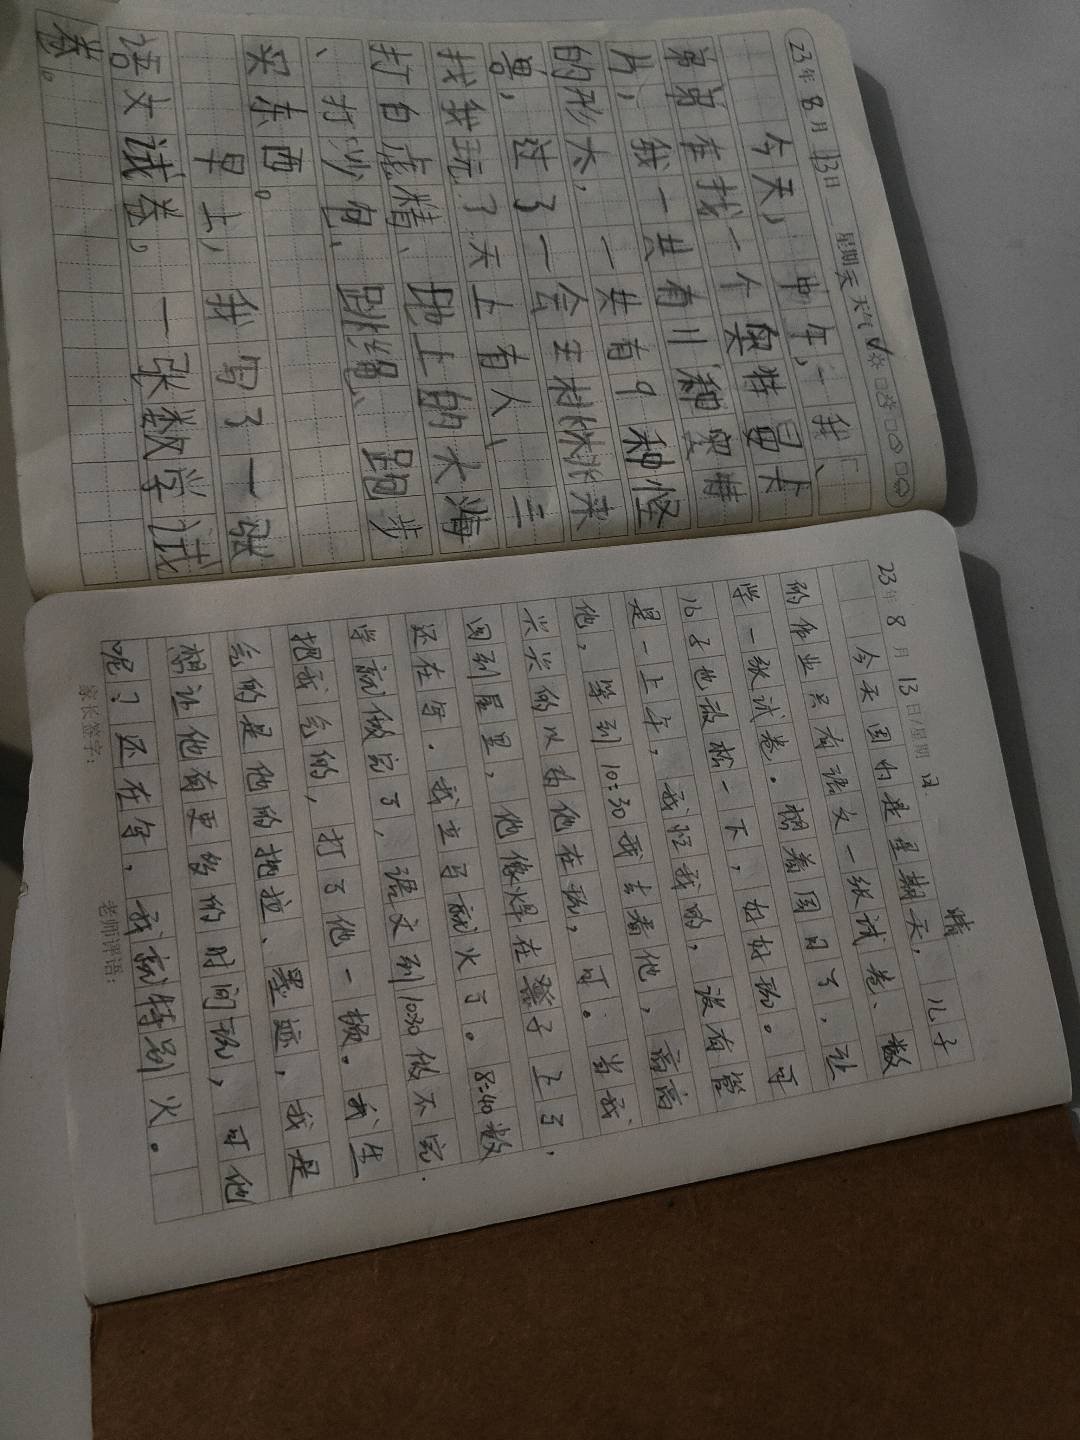 23年8月13日 星期天 天气
今天，中午，我、
弟弟在找一个奥特曼卡
片，我一共有11种奥特
的形太，一共有9种怪
兽，过了一会王村
找我玩了天上有人、三
打白虎精、地上的大海
、打沙包、跳绳、跑步
买东西。
早上，我写了一张
语文试卷，一张数学试
卷。
23年8月13日/星期日. 晴
今天因为是星期天，儿子
的作业只有语文一张试卷、数
学一张试卷。想着周日了，让
儿子也放松一下，好好玩。可
是一上午，我忙我的，没有管
他，等到10:30我去看他，高高
兴兴的以为他在玩，可。当我
回到屋里，他像焊在凳子上了，
还在写．我立马就火了。8:40数
学就做完了，语文到1030做不完．
把我气的，打了他一顿。我生
气的是他的拖拉、墨迹，我是
想让他有更多的时间玩，可他
呢？还在写，我就特别火。
家长签字： 老师评语：